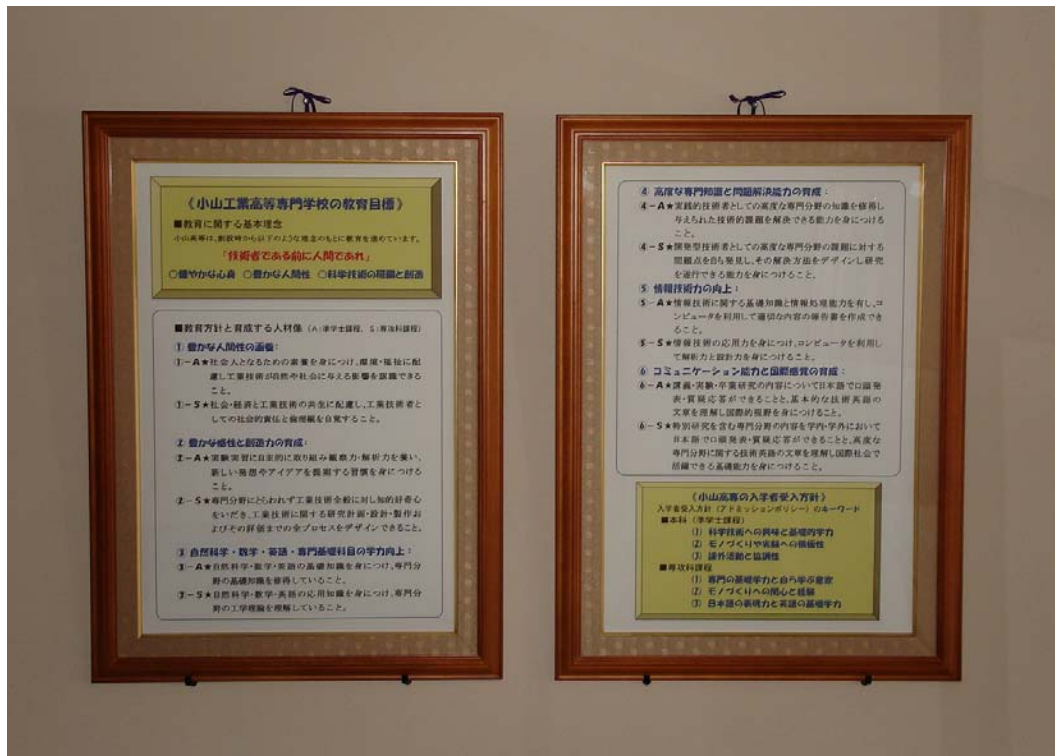 《小山工業高等専門学校の教育目標》
■教育に関する基本理念
小山高専は、創設時から以下のような理念のもとに教育を進めています。
「技術者である前に人間であれ」
○健やかな心身 ○豊かな人間性 ○科学技術の探究と創造
■教育方針と育成する人材像（A：準学士課程、S：専攻科課程）
① 豊かな人間性の涵養：
①－A★社会人となるための素養を身につけ、環境・福祉に配
慮し工業技術が自然や社会に与える影響を認識できる
こと。
①－S★社会・経済と工業技術の共生に配慮し、工業技術者と
しての社会的責任と倫理観を自覚すること。
② 豊かな感性と創造力の育成：
②－A★実験実習に自主的に取り組み観察力・解析力を養い、
新しい発想やアイデアを提案する習慣を身につける
こと。
②－S★専門分野にとらわれず工業技術全般に対し知的好奇心
をいだき、工業技術に関する研究計画・設計・製作お
よびその評価までの全プロセスをデザインできること。
③ 自然科学・数学・英語・専門基礎科目の学力向上：
③－A★自然科学・数学・英語の基礎知識を身につけ、専門分
野の基礎知識を修得していること。
③－S★自然科学・数学・英語の応用知識を身につけ、専門分
野の工学理論を理解していること。
④ 高度な専門知識と問題解決能力の育成：
④－A★実践的技術者としての高度な専門分野の知識を修得し
与えられた技術的課題を解決できる能力を身につける
こと。
④－S★開発型技術者としての高度な専門分野の課題に対する
問題点を自ら発見し、その解決方法をデザインし研究
を遂行できる能力を身につけること。
⑤ 情報技術力の向上：
⑤－A★情報技術に関する基礎知識と情報処理能力を有し、コ
ンピュータを利用して適切な内容の報告書を作成でき
ること。
⑤－S★情報技術の応用力を身につけ、コンピュータを利用し
て解析力と設計力を身につけること。
⑥ コミュニケーション能力と国際感覚の育成：
⑥－A★講義・実験・卒業研究の内容について日本語で口頭発
表・質疑応答ができることと、基本的な技術英語の
文章を理解し国際的視野を身につけること。
⑥－S★特別研究を含む専門分野の内容を学内・学外において
日本語で口頭発表・質疑応答ができることと、高度な
専門分野に関する技術英語の文章を理解し国際社会で
活躍できる基礎能力を身につけること。
《小山高専の入学者受入方針》
入学者受入方針（アドミッションポリシー）のキーワード
■本科（準学士課程）
(1) 科学技術への興味と基礎的学力
(2) モノづくりや実験への積極性
(3) 課外活動と協調性
■専攻科課程
(1) 専門の基礎学力と自ら学ぶ意欲
(2) モノづくりへの関心と経験
(3) 日本語の表現力と英語の基礎学力